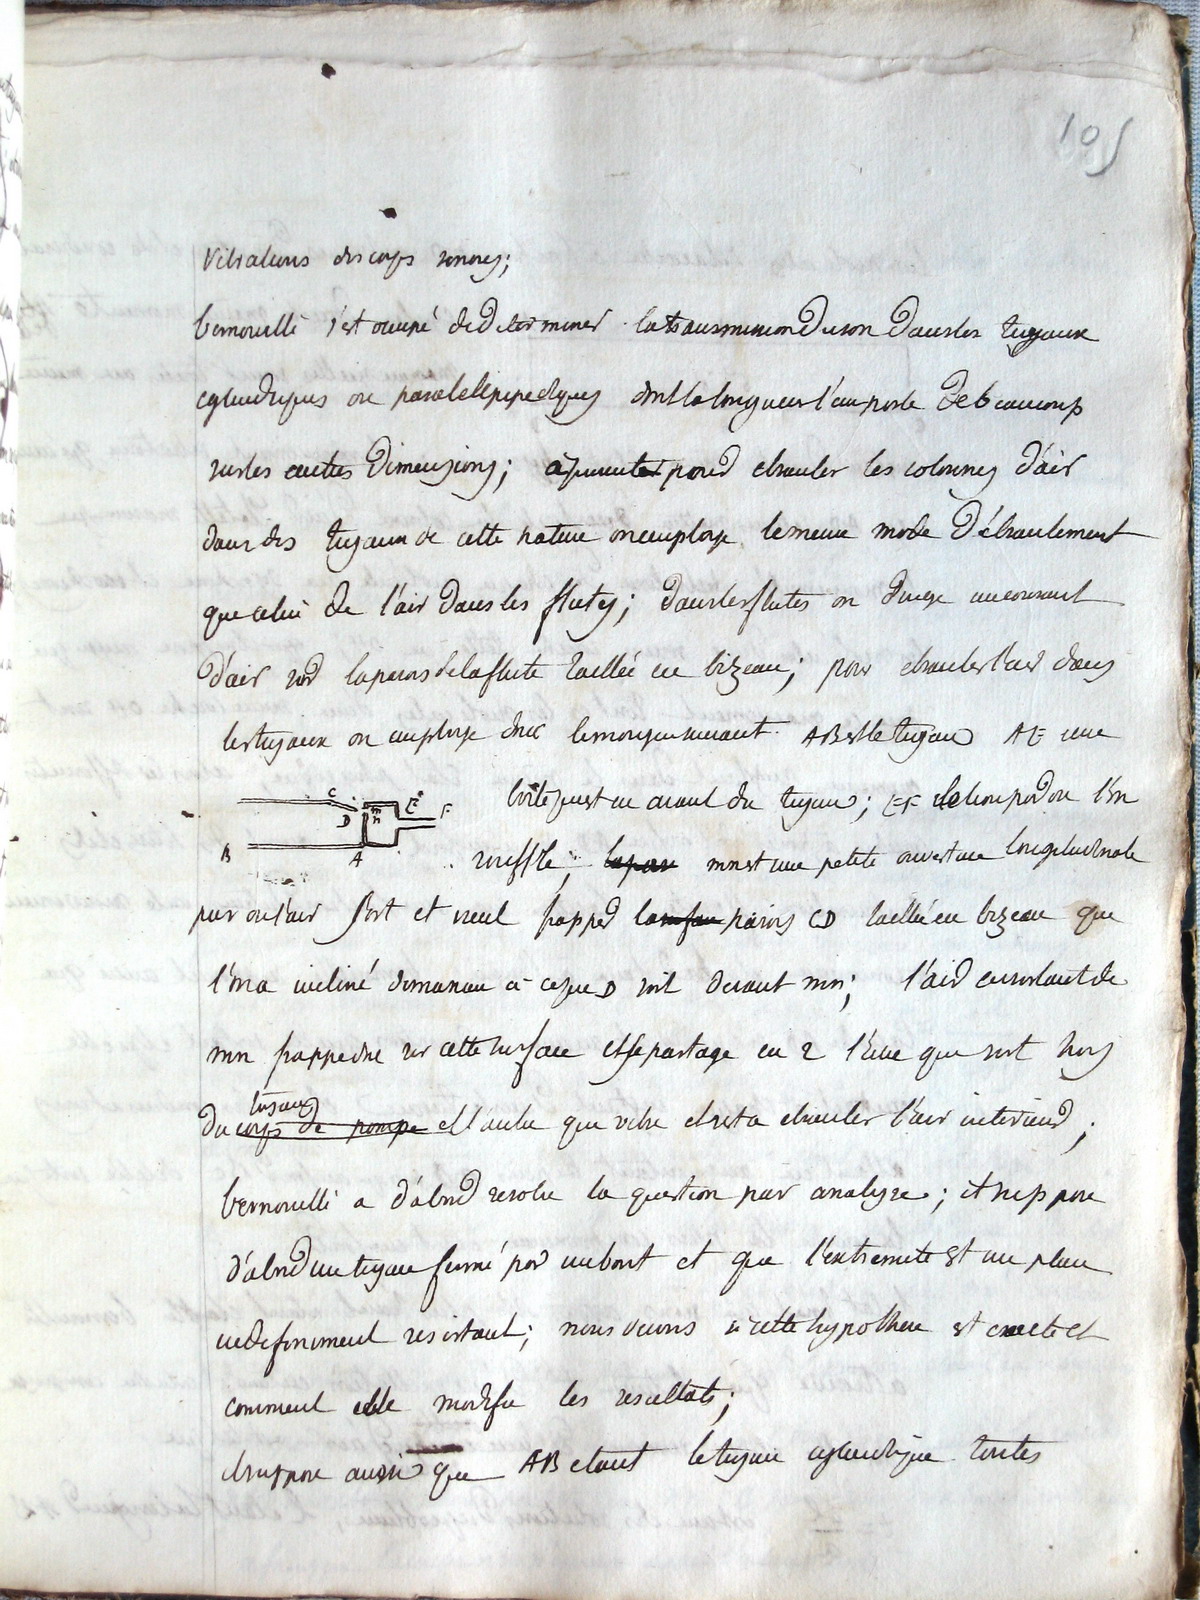 105
Vibrations des corps sonores;
bernouilli s'est occupé de determiner la transmission du son dans les tuyaux
cylindriques ou parallelepipediques dont la longueur l'emporte de beaucoup
sur les autres dimensions; pour ebranler les colonnes d'air
dans des tuyaux de cette nature on employe le meme mode d'ébranlement
que celui de l'air dans les flutes; dans les flutes on dirige un courant
d'air sur la parois de la flute taillée en bizeau; pour ebranler l'air dans
les tuyaux on employe donc le moyen suivant. AB est le tuyau AE une
boite qui est en avant du tuyau; EF le trou par ou l'on
C E F m n D B A
souffle; mn est une petite ouverture longitudinale
par ou l'air sort et vient frapper la parois CD taillée en bizeau que
l'on a incliné de maniere à ce que D soit devant mn; l'air en sortant de
mn frappe donc sur cette surface et se partage en 2 l'une que sort hors
tuyau
du corps de pompe et l'autre que vibre et sert a ebranler l'air interieur;
bernouilli a d'abord resolu la question par analyse; il suppose
d'abord un tuyau fermé par un bout et que l'extremité est un plan
indefiniment resistant; nous verrons si cette hypothese est exacte et
comment elle modifie les resultats;
il suppose aussi que AB etant le tuyau cylindrique toutes